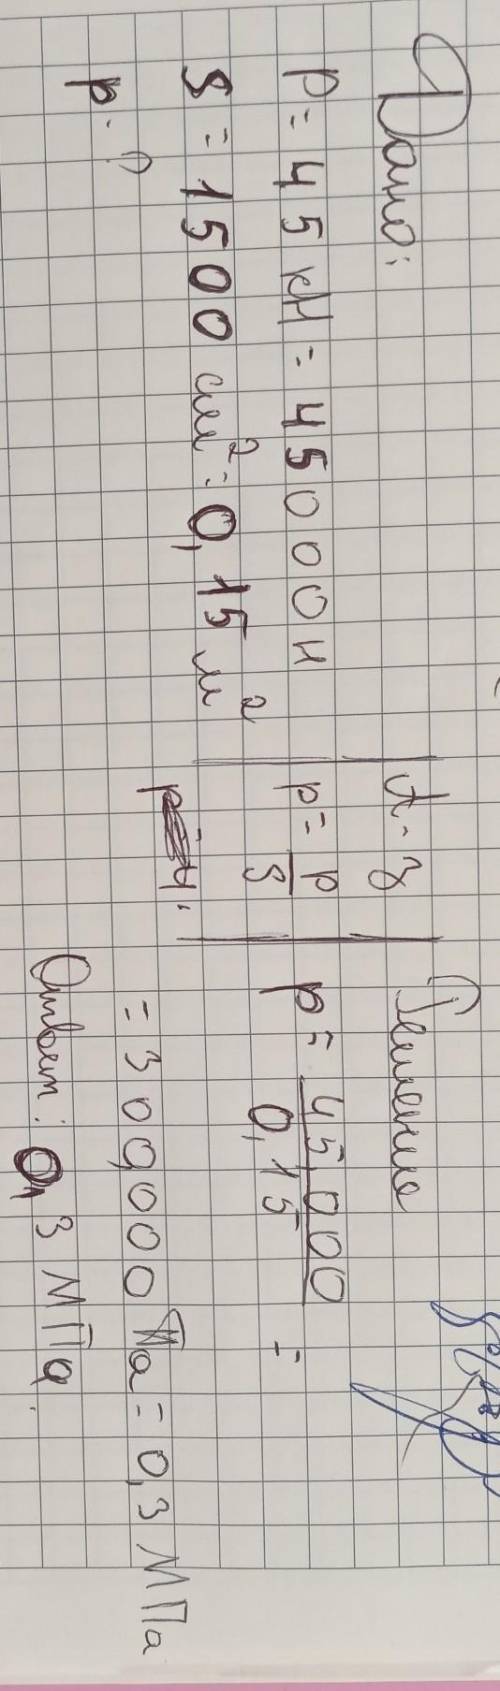 Дано:
P = 45 кН = 45000 Н
S = 1500 см² = 0,15 м²
p - ?
А-з
p = P/S
Решение
p = 45000/0,15 =
= 300000 Па = 0,3 МПа
Ответ: 0,3 МПа.